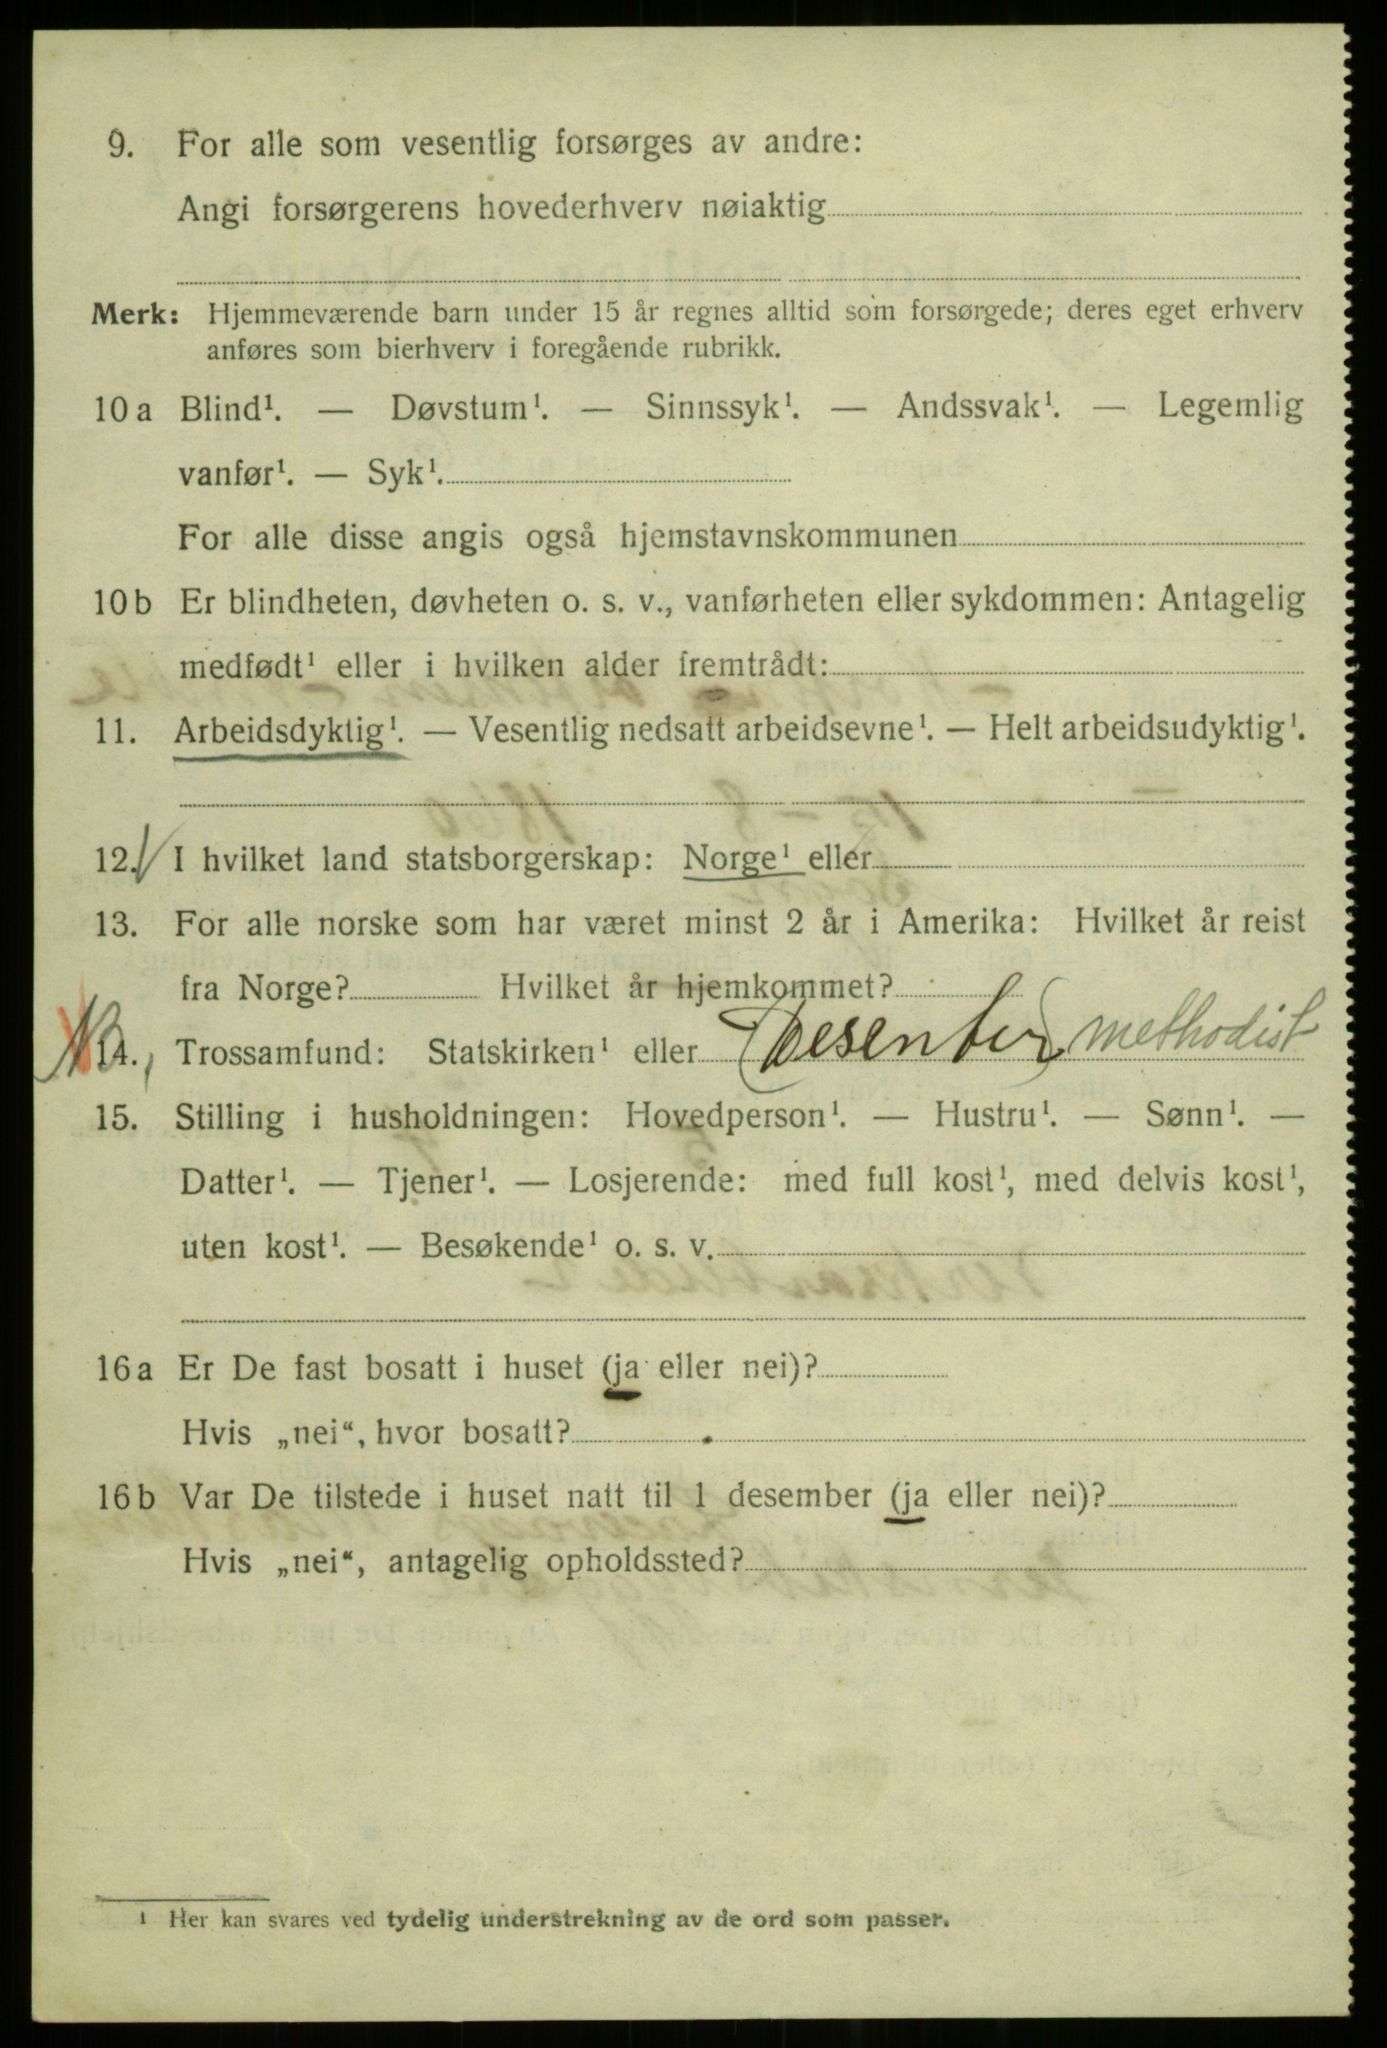 9. For alle som vesentlig forsørges av andre:
Angi forsørgerens hovederhverv nøiaktig
Merk: Hjemmeværende barn under 15 år regnes alltid som forsørgede; deres eget erhverv
anføres som bierhverv i foregående rubrikk.
10 a Blind¹. — Døvstum¹. — Sinnssyk¹. — Andssvak¹. — Legemlig
vanfør¹. — Syk¹.
For alle disse angis også hjemstavnskommunen
10 b Er blindheten, døvheten o. s. v., vanførheten eller sykdommen: Antagelig
medfødt¹ eller i hvilken alder fremtrådt:
11. Arbeidsdyktig¹. — Vesentlig nedsatt arbeidsevne¹. — Helt arbeidsudyktig¹.
12. I hvilket land statsborgerskap: Norge¹ eller
13. For alle norske som har været minst 2 år i Amerika: Hvilket år reist
fra Norge? Hvilket år hjemkommet?
NB, 14. Trossamfund: Statskirken¹ eller (Desenter) methodist
15. Stilling i husholdningen: Hovedperson¹. — Hustru¹. — Sønn¹. —
Datter¹. — Tjener¹. — Losjerende: med full kost¹, med delvis kost¹,
uten kost¹. — Besøkende¹ o. s. v.
16 a Er De fast bosatt i huset (ja eller nei)?
Hvis „nei“, hvor bosatt?
16 b Var De tilstede i huset natt til 1 desember (ja eller nei)?
Hvis „nei“, antagelig opholdssted?
¹ Her kan svares ved tydelig understrekning av de ord som passer.